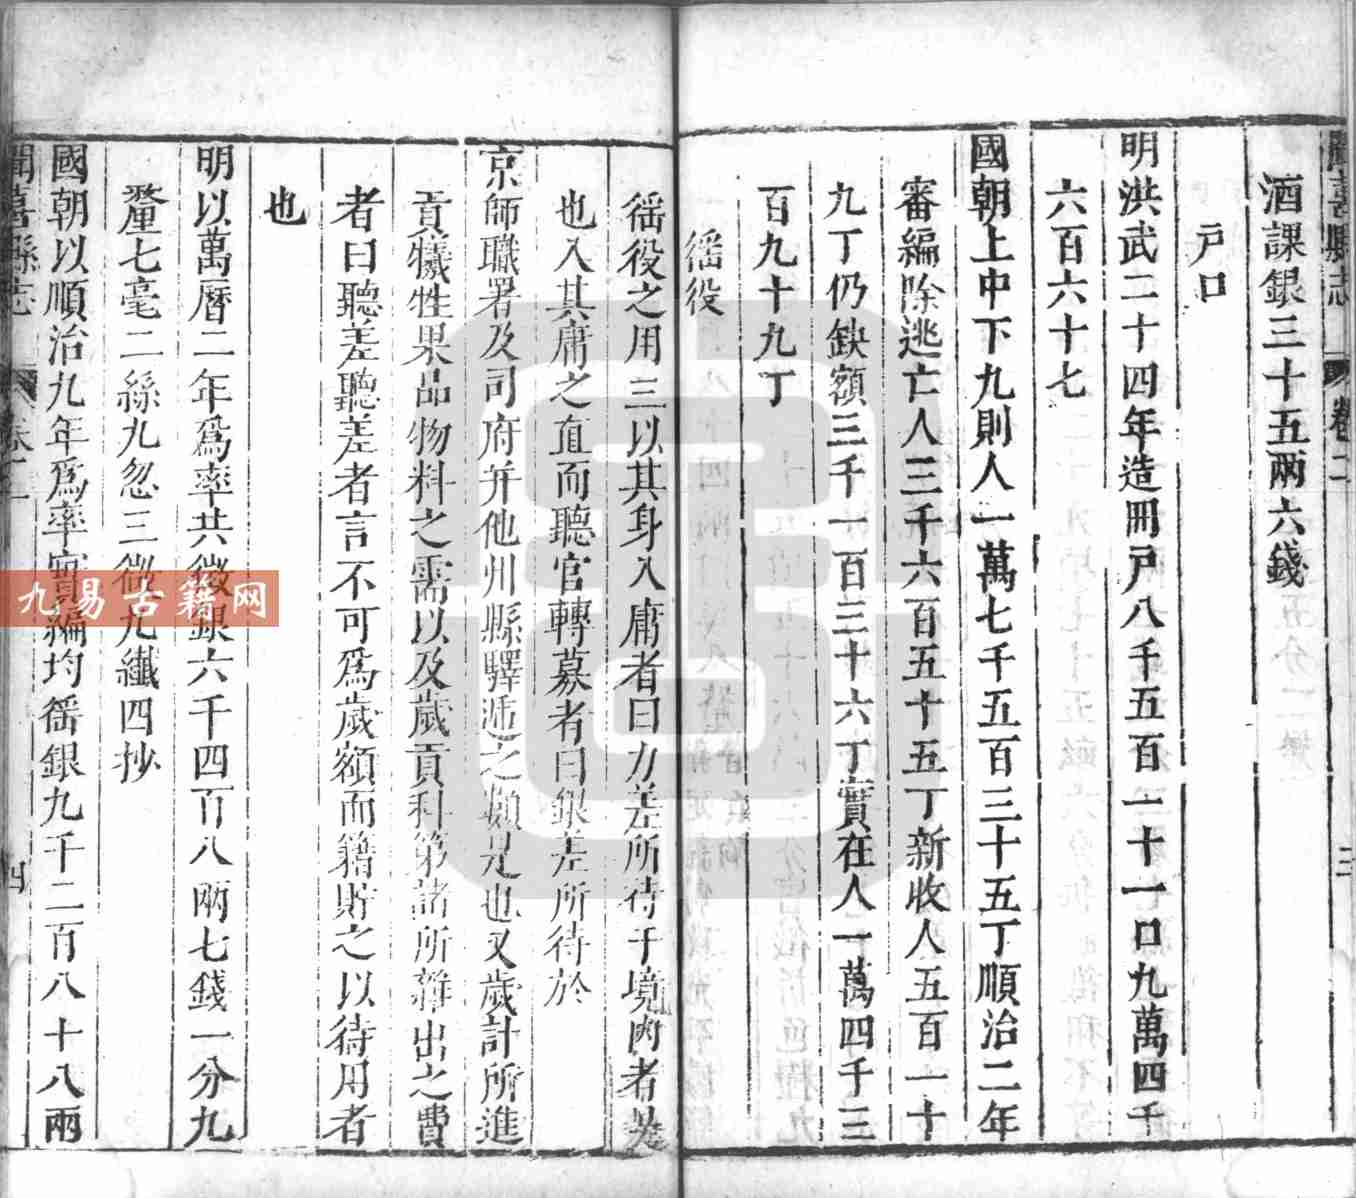 聞喜縣志
卷二
三
酒課銀三十五兩六錢
戶口
明洪武二十四年造冊戶八千五百一十一口九萬四千
六百六十七
國朝上中下九則人一萬七千五百三十五丁順治二年
審編除逃亡人三千六百五十五丁新收人五百一十
九丁仍缺額三千一百三十六丁實在人一萬四千三
百九十九丁
徭役
徭役之用三以其身入庸者曰力差所待于境內者是
也入其庸之直而聽官轉募者曰銀差所待於
京師職署及司府并他州縣驛遞之類是也又歲計所進
貢犧牲果品物料之需以及歲貢科第諸所雜出之費
者曰聽差聽差者言不可爲歲額而籍貯之以待用者
也
明以萬曆二年爲率共徵銀六千四百八兩七錢一分九
釐七毫二絲九忽三微九纖四抄
國朝以順治九年爲率實編均徭銀九千二百八十八兩
聞喜縣志
卷二
四
九易古籍网